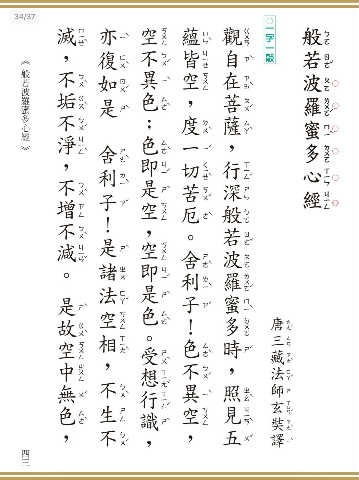 34/37
般若波羅蜜多心經
唐三藏法師玄奘譯
一字一敲
觀自在菩薩，行深般若波羅蜜多時，照見五
蘊皆空，度一切苦厄。舍利子！色不異空，
空不異色；色即是空，空即是色。受想行識，
亦復如是　舍利子！是諸法空相，不生不
滅，不垢不淨，不增不減。是故空中無色，
《般若波羅蜜多心經》
四三